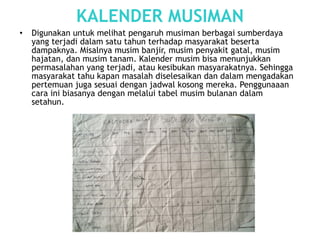 KALENDER MUSIMAN
• Digunakan untuk melihat pengaruh musiman berbagai sumberdaya
yang terjadi dalam satu tahun terhadap masyarakat beserta
dampaknya. Misalnya musim banjir, musim penyakit gatal, musim
hajatan, dan musim tanam. Kalender musim bisa menunjukkan
permasalahan yang terjadi, atau kesibukan masyarakatnya. Sehingga
masyarakat tahu kapan masalah diselesaikan dan dalam mengadakan
pertemuan juga sesuai dengan jadwal kosong mereka. Penggunaaan
cara ini biasanya dengan melalui tabel musim bulanan dalam
setahun.